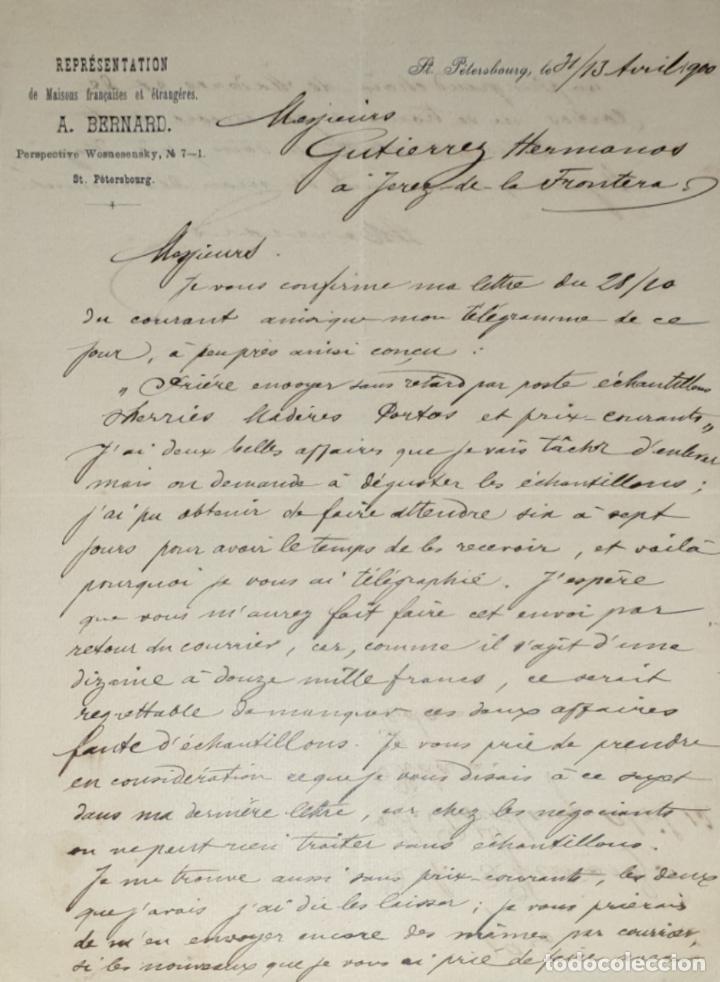 REPRÉSENTATION
de Maisons françaises et étrangères.
A. BERNARD.
Perspective Wosnesensky, № 7—1.
St. Pétersbourg.
St. Pétersbourg, le 31/13 Avril 1900
Messieurs
Gutierrez Hermanos
à Jerez de la Frontera
Messieurs.
Je vous confirme ma lettre du 28/10
du courant ainsi que mon télégramme de ce
jour, à peu près ainsi conçu :
„ Prière envoyer sans retard par poste échantillons
Sherries Madères Portos et prix-courants „
J'ai deux belles affaires que je vais tâcher d'enlever
mais on demande à déguster les échantillons ;
j'ai pu obtenir de faire attendre six à sept
jours pour avoir le temps de les recevoir, et voilà
pourquoi je vous ai télégraphié. J'espère
que vous m'aurez fait faire cet envoi par
retour du courrier, car, comme il s'agit d'une
dizaine à douze mille francs, ce serait
regrettable de manquer ces deux affaires
faute d'échantillons. Je vous prie de prendre
en considération ce que je vous disais à ce sujet
dans ma dernière lettre, car chez les négociants
on ne peut rien traiter sans échantillons.
Je me trouve aussi sans prix-courants, les deux
que j'avais j'ai dû les laisser ; je vous prierais
de m'en envoyer encore des mêmes par courrier,
si les nouveaux que je vous ai prié de faire
todocoleccion